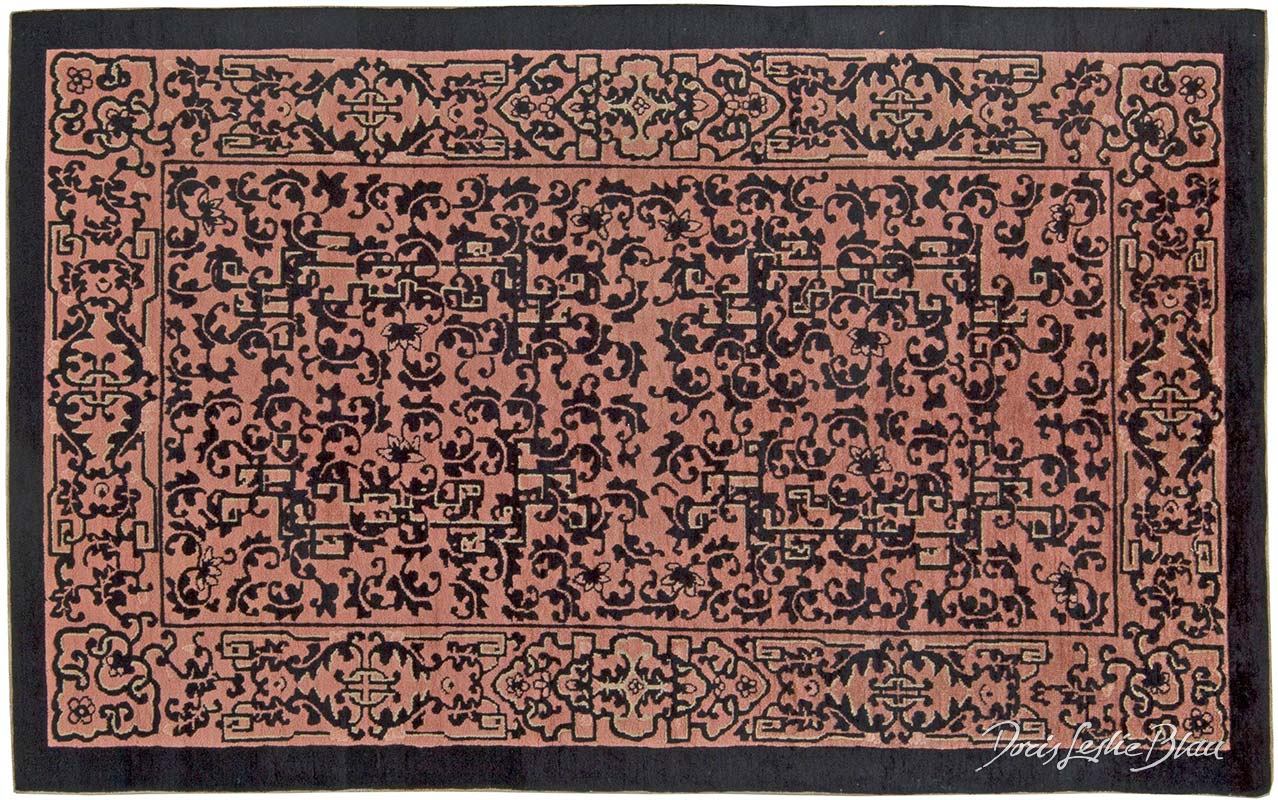 Doris Leslie Blau